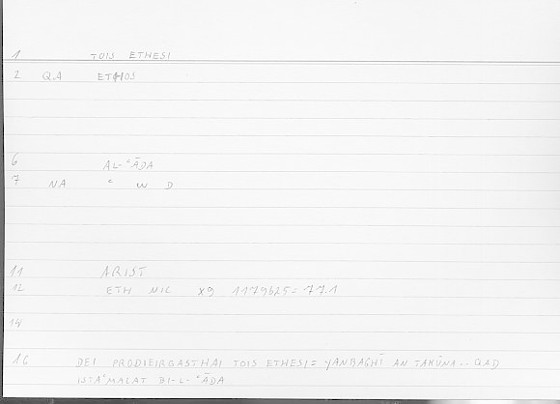 1 TOIS ETHESI
2 QA ETHOS
6 AL-ʿĀDA
7 NA ʿ W D
11 ARIST
12 ETH NIC X9 1179b25=771
14
16 DEI PRODIEIRGASTHAI TOIS ETHESI= YANBAGHĪ AN TAKŪNA.. QAD
ISTAʿMALAT BI-L-ʿĀDA